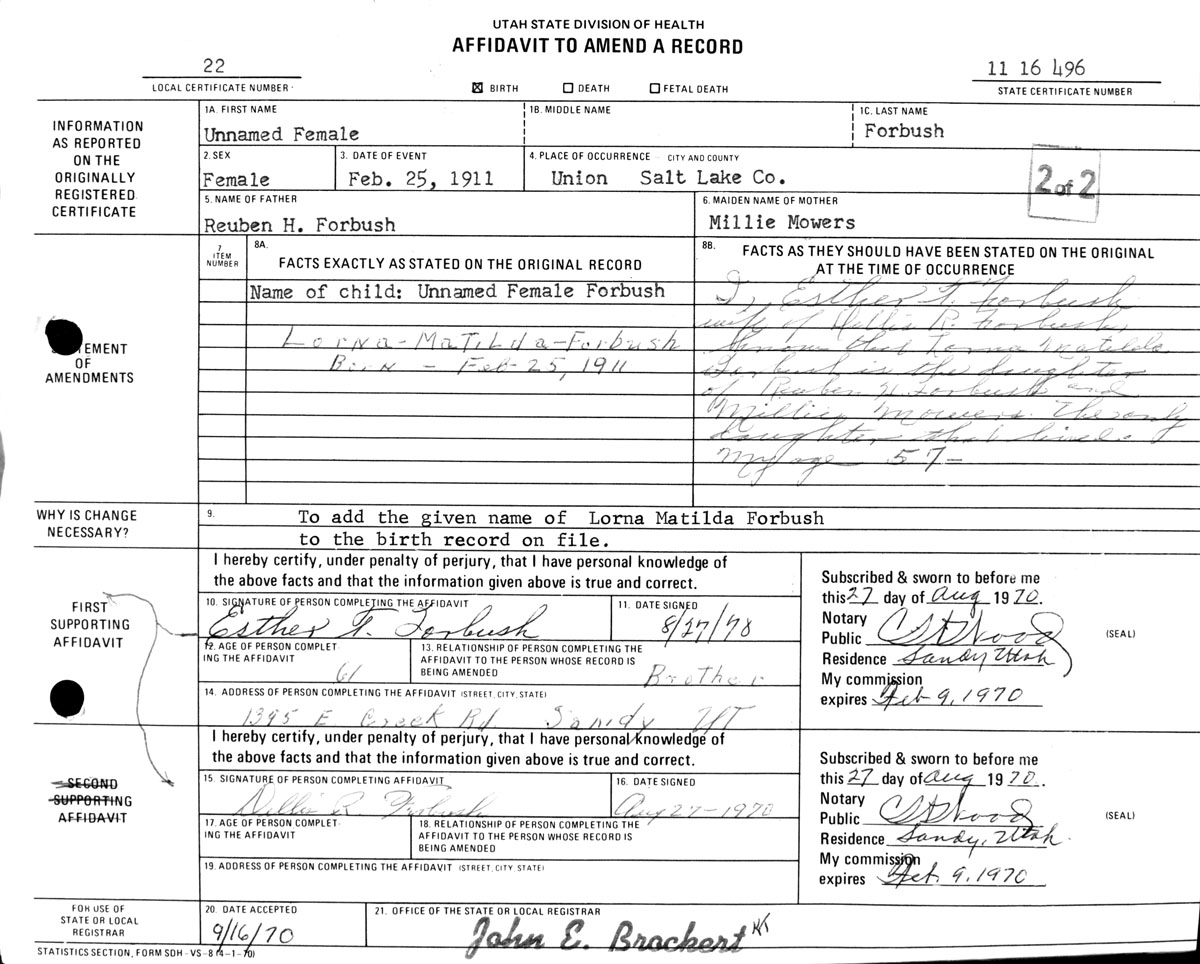 UTAH STATE DIVISION OF HEALTH
AFFIDAVIT TO AMEND A RECORD
22
LOCAL CERTIFICATE NUMBER
☒ BIRTH ☐ DEATH ☐ FETAL DEATH
11 16 496
STATE CERTIFICATE NUMBER
INFORMATION
AS REPORTED
ON THE
ORIGINALLY
REGISTERED
CERTIFICATE
1A. FIRST NAME
Unnamed Female
1B. MIDDLE NAME
1C. LAST NAME
Forbush
2. SEX
Female
3. DATE OF EVENT
Feb. 25, 1911
4. PLACE OF OCCURRENCE - CITY AND COUNTY
Union Salt Lake Co.
2 of 2
5. NAME OF FATHER
Reuben H. Forbush
6. MAIDEN NAME OF MOTHER
Millie Mowers
TEMENT
OF
AMENDMENTS
7
ITEM
NUMBER
8A.
FACTS EXACTLY AS STATED ON THE ORIGINAL RECORD
Name of child: Unnamed Female Forbush
Lorna-Matilda-Forbush
Born - Feb-25, 1911
8B. FACTS AS THEY SHOULD HAVE BEEN STATED ON THE ORIGINAL
AT THE TIME OF OCCURRENCE
I, Esther F. Forbush
wife of Dellis R. Forbush,
know that Lorna Matilda
Forbush is the daughter
of Reuben H. Forbush and
Millie Mowers. The only
daughter that lived.
My age 57-
WHY IS CHANGE
NECESSARY?
9.
To add the given name of Lorna Matilda Forbush
to the birth record on file.
FIRST
SUPPORTING
AFFIDAVIT
I hereby certify, under penalty of perjury, that I have personal knowledge of
the above facts and that the information given above is true and correct.
10. SIGNATURE OF PERSON COMPLETING THE AFFIDAVIT
Esther F. Forbush
11. DATE SIGNED
8/27/70
12. AGE OF PERSON COMPLET-
ING THE AFFIDAVIT
61
13. RELATIONSHIP OF PERSON COMPLETING THE
AFFIDAVIT TO THE PERSON WHOSE RECORD IS
BEING AMENDED
Brother
14. ADDRESS OF PERSON COMPLETING THE AFFIDAVIT (STREET, CITY, STATE)
1395 E. Creek Rd. Sandy UT
Subscribed & sworn to before me
this 27 day of Aug 1970.
Notary
Public
Residence Sandy, Utah
My commission
expires Feb 9, 1970
(SEAL)
SECOND
SUPPORTING
AFFIDAVIT
I hereby certify, under penalty of perjury, that I have personal knowledge of
the above facts and that the information given above is true and correct.
15. SIGNATURE OF PERSON COMPLETING AFFIDAVIT
Dellis R. Forbush
16. DATE SIGNED
Aug 27-1970
17. AGE OF PERSON COMPLET-
ING THE AFFIDAVIT
18. RELATIONSHIP OF PERSON COMPLETING THE
AFFIDAVIT TO THE PERSON WHOSE RECORD IS
BEING AMENDED
19. ADDRESS OF PERSON COMPLETING THE AFFIDAVIT (STREET, CITY, STATE)
Subscribed & sworn to before me
this 27 day of Aug 1970.
Notary
Public
Residence Sandy, Utah
My commission
expires Feb. 9, 1970
(SEAL)
FOR USE OF
STATE OR LOCAL
REGISTRAR
20. DATE ACCEPTED
9/16/70
21. OFFICE OF THE STATE OR LOCAL REGISTRAR
John E. Brockert
STATISTICS SECTION, FORM SDH-VS-8 (4-1-70)